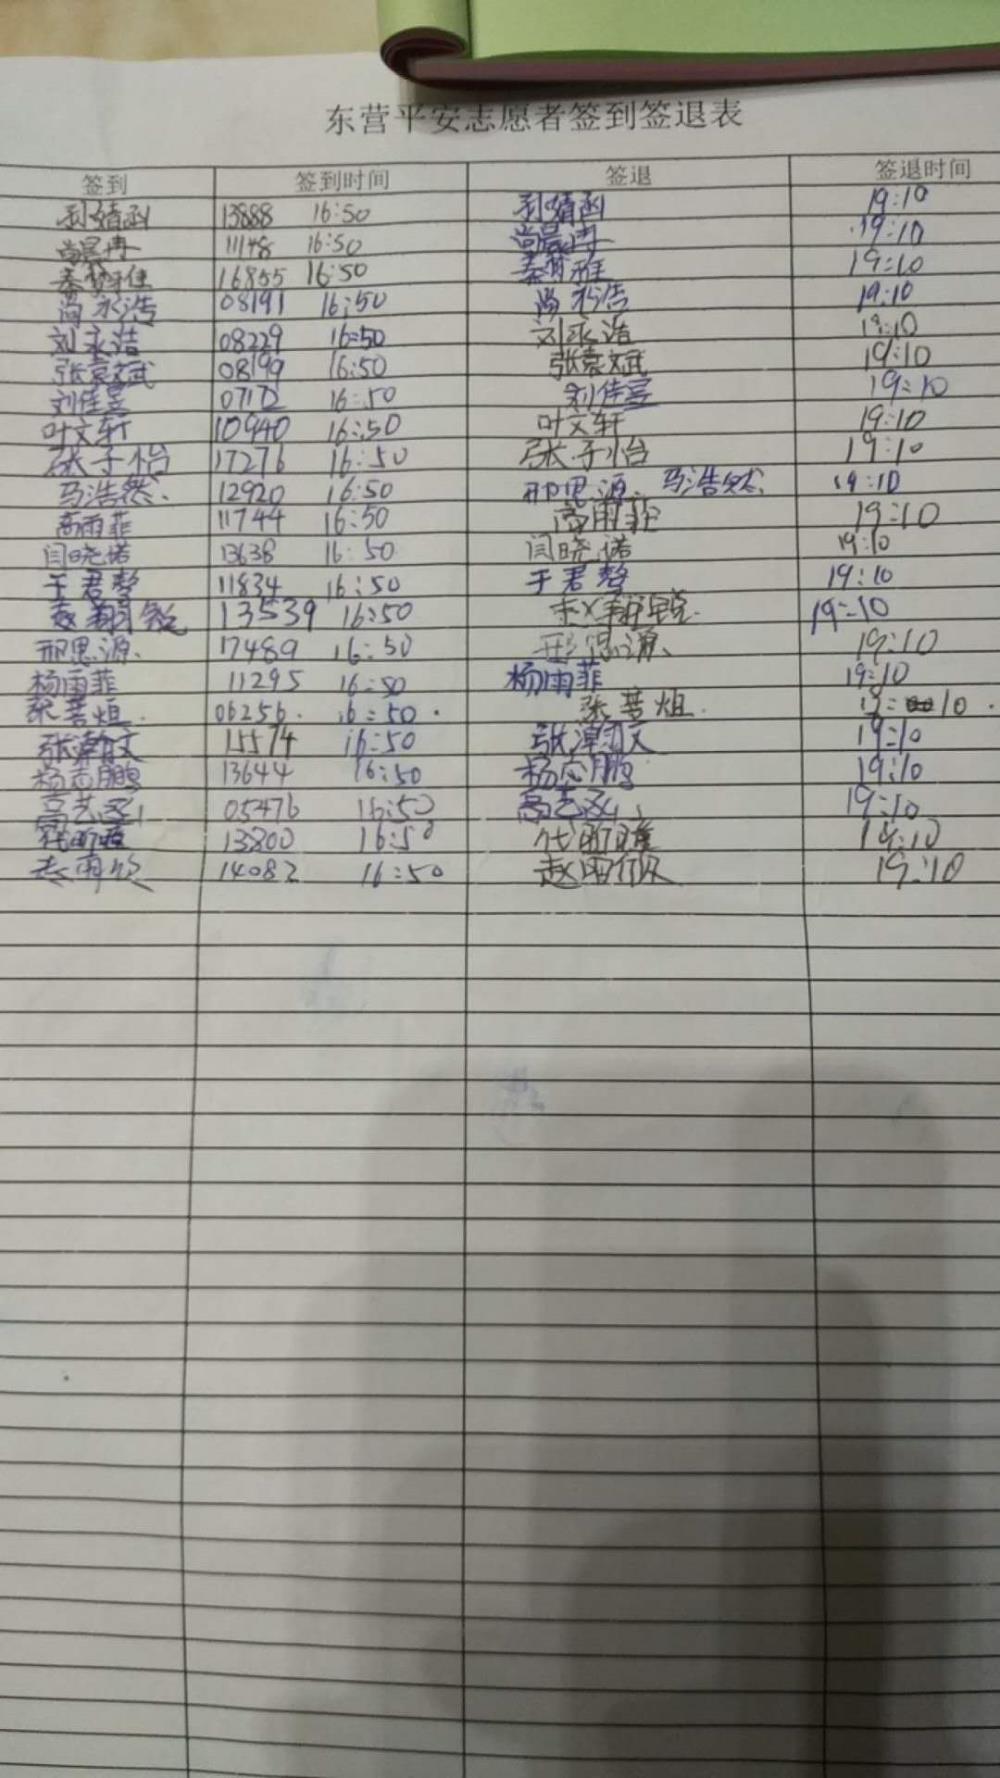 东营平安志愿者签到签退表
签到 签到时间 签退 签退时间
婧函 13888 16:50 婧函 19:10
尚晨冉 11148 16:50 尚晨冉 19:10
秦梦雅 16855 16:50 秦梦雅 19:10
尚永浩 08191 16:50 尚永浩 19:10
刘永洁 08229 16:50 刘永浩 19:10
张嘉斌 08199 16:50 张嘉斌 19:10
刘佳昱 07172 16:50 刘佳昱 19:10
叶文轩 10940 16:50 叶文轩 19:10
张子怡 17276 16:50 张子怡 19:10
马浩然. 12920 16:50 邢思源. 马浩然. 19:10
高雨菲 11744 16:50 高雨菲 19:10
闫晓诺 13638 16:50 闫晓诺 19:10
于君 11834 16:50 于君 19:10
赵翔锐 13539 16:50 赵翔锐. 19:10
邢思源. 17489 16:50 邢思源. 19:10
杨雨菲 11295 16:50 杨雨菲 19:10
张 06256. 16:50. 张 19:10.
张瀚文 15574 16:50 张瀚文 19:10
杨志鹏 13644 16:50 杨志鹏 19:10
高艺 05476 16:50 高艺 19:10
代昕 13800 16:50 代昕 19:10
赵雨欣 14082 16:50 赵雨欣 19:10